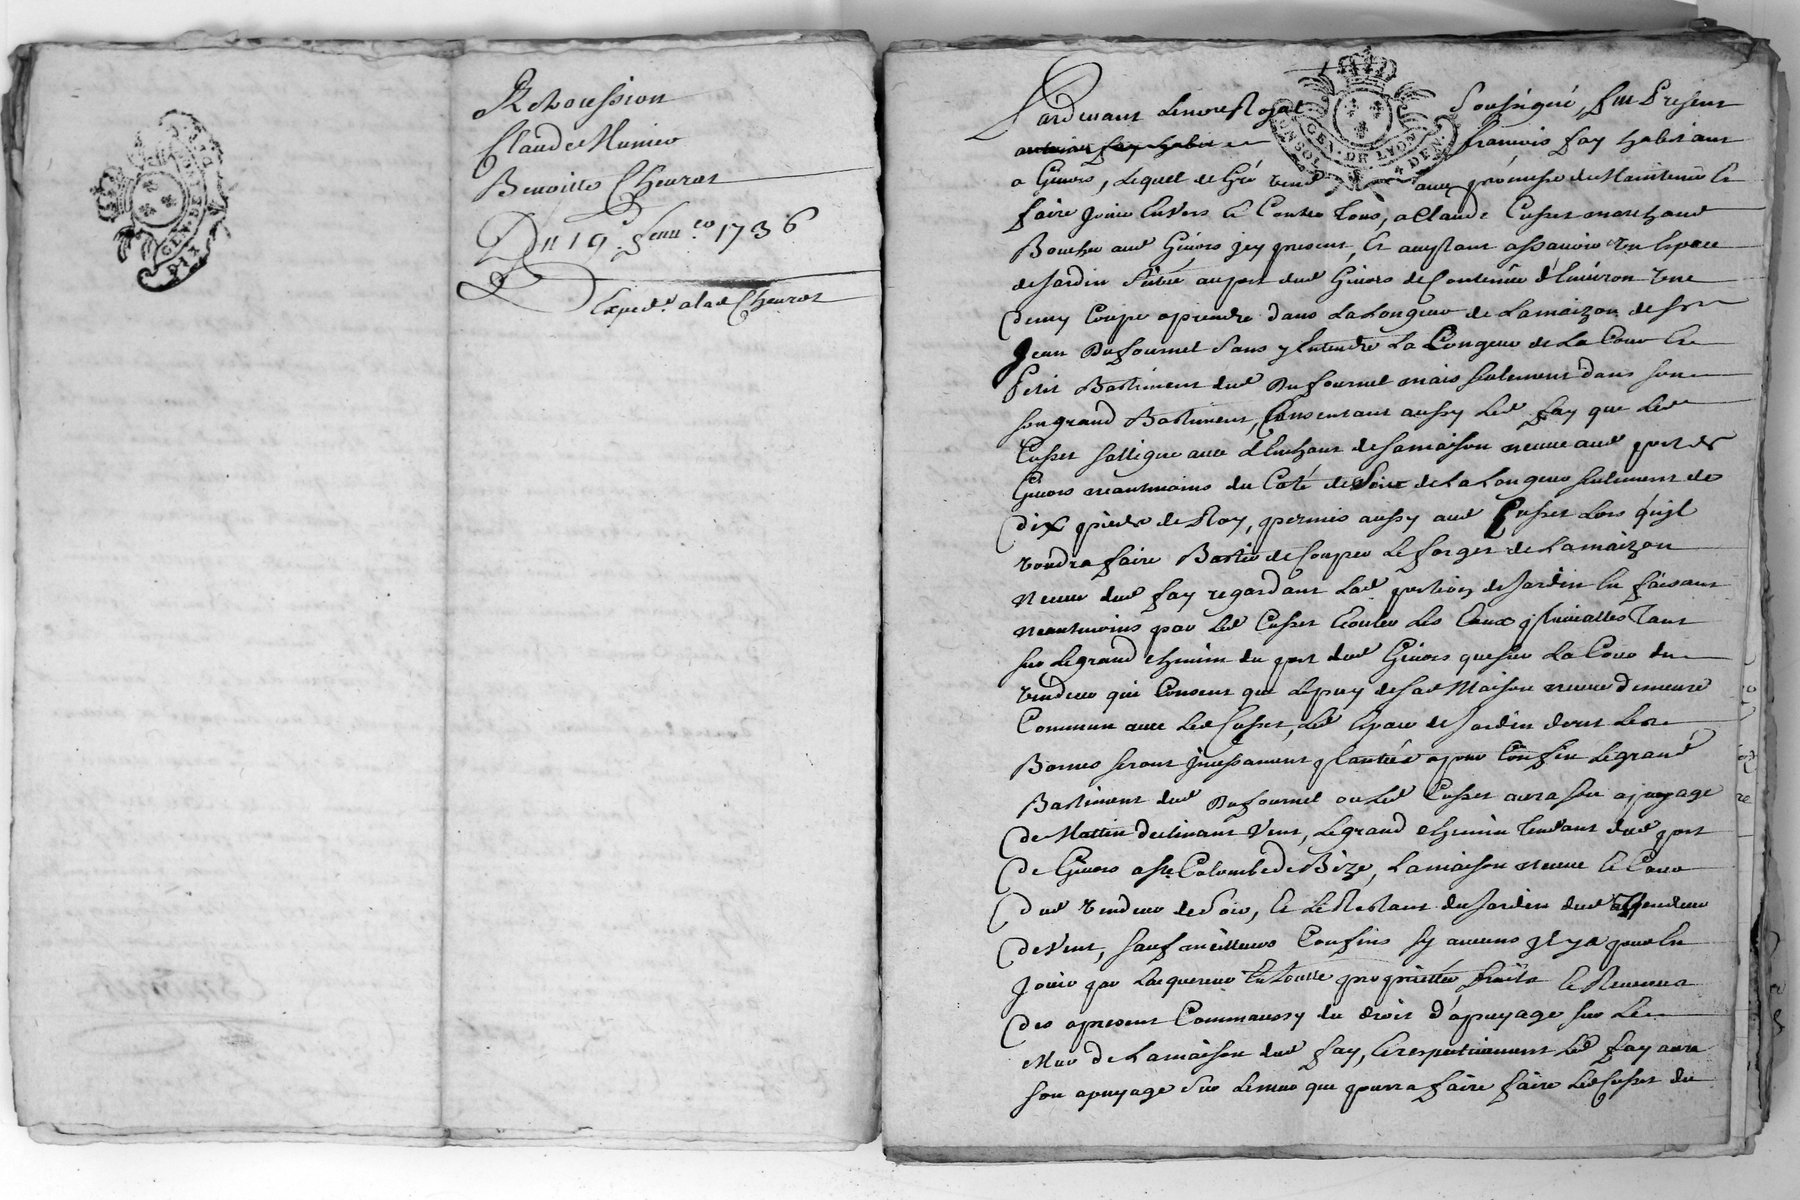 Retrocession
Claude Munier
Benoitte Cheurat
Du 19e Janv.er 1736
Exped.e a lad Cheurat
GEN. DE
DIX
Pardevant Le no.re Royal Soussigné, fut Present
GEN. DE LYON
UN SOL
DEN
antoine fay habit françois fay habitant
a Givors, Lequel de Gré vend avec promesse de Maintenir Et
faire Jouir Envers Et Contre Tous, a Claude Cusset marchand
Boucher aud Givors jcy present, Et aceptant assavoir un Espace
de Jardin Situé au port dud Givors de Contenue d'Environ Une
Demy Coupe a prendre dans La Longeur de La maizon de Sr
Jean Dufournel Sans y Entendre La Longeur de La Cour Et
Petit Bastiment dud Dufournel mais seulement dans son
son grand Bastiment, Consentant aussy Led fay que Led
Cusset s'alligne avec L'Enchant de sa maison neuve aud port de
Givors neantmoins du Coté de Soir de La Longeur seulement de
Dix pieds de Roy, permis aussy aud Cusset Lors qu'jl
voudra faire Bastir de Couper Le forget de La maizon
Neuve dud fay regardant Lad portion de Jardin En faisant
neantmoins par Led Cusset Ecouler Les Eaux pluvialles Tant
sur Le grand chemin du port dud Givors que sur La Cour du
vendeur qui Consent que Le puy de Sad Maison neuve demeure
Commun avec Led Cusset, Led Espace de Jardin dont Les
Bornes seront jncessament plantées a pour Confin Le grand
Bastiment dud Dufournel ou Led Cusset aura son apuyage
De Mattin declinant Vent, Le grand chemin Tendant dud port
De Givors a Ste Colombe de Bize, La maison neuve Et Cour
Dud vendeur de Soir, Et Le Restant du Jardin dud vendeur
De Vent, Sauf meilleurs Confins sy aucuns jl y a pour En
Jouir par L'acquereur En Toutte proprietté, fruits Et Revenus
Des apresent Comm'aussy du droit d'apuyage sur Le
Mur de La maison dud fay, Et respectivement Led fay aura
son apuyage sur Le mur que pourra faire faire Led Cusset du